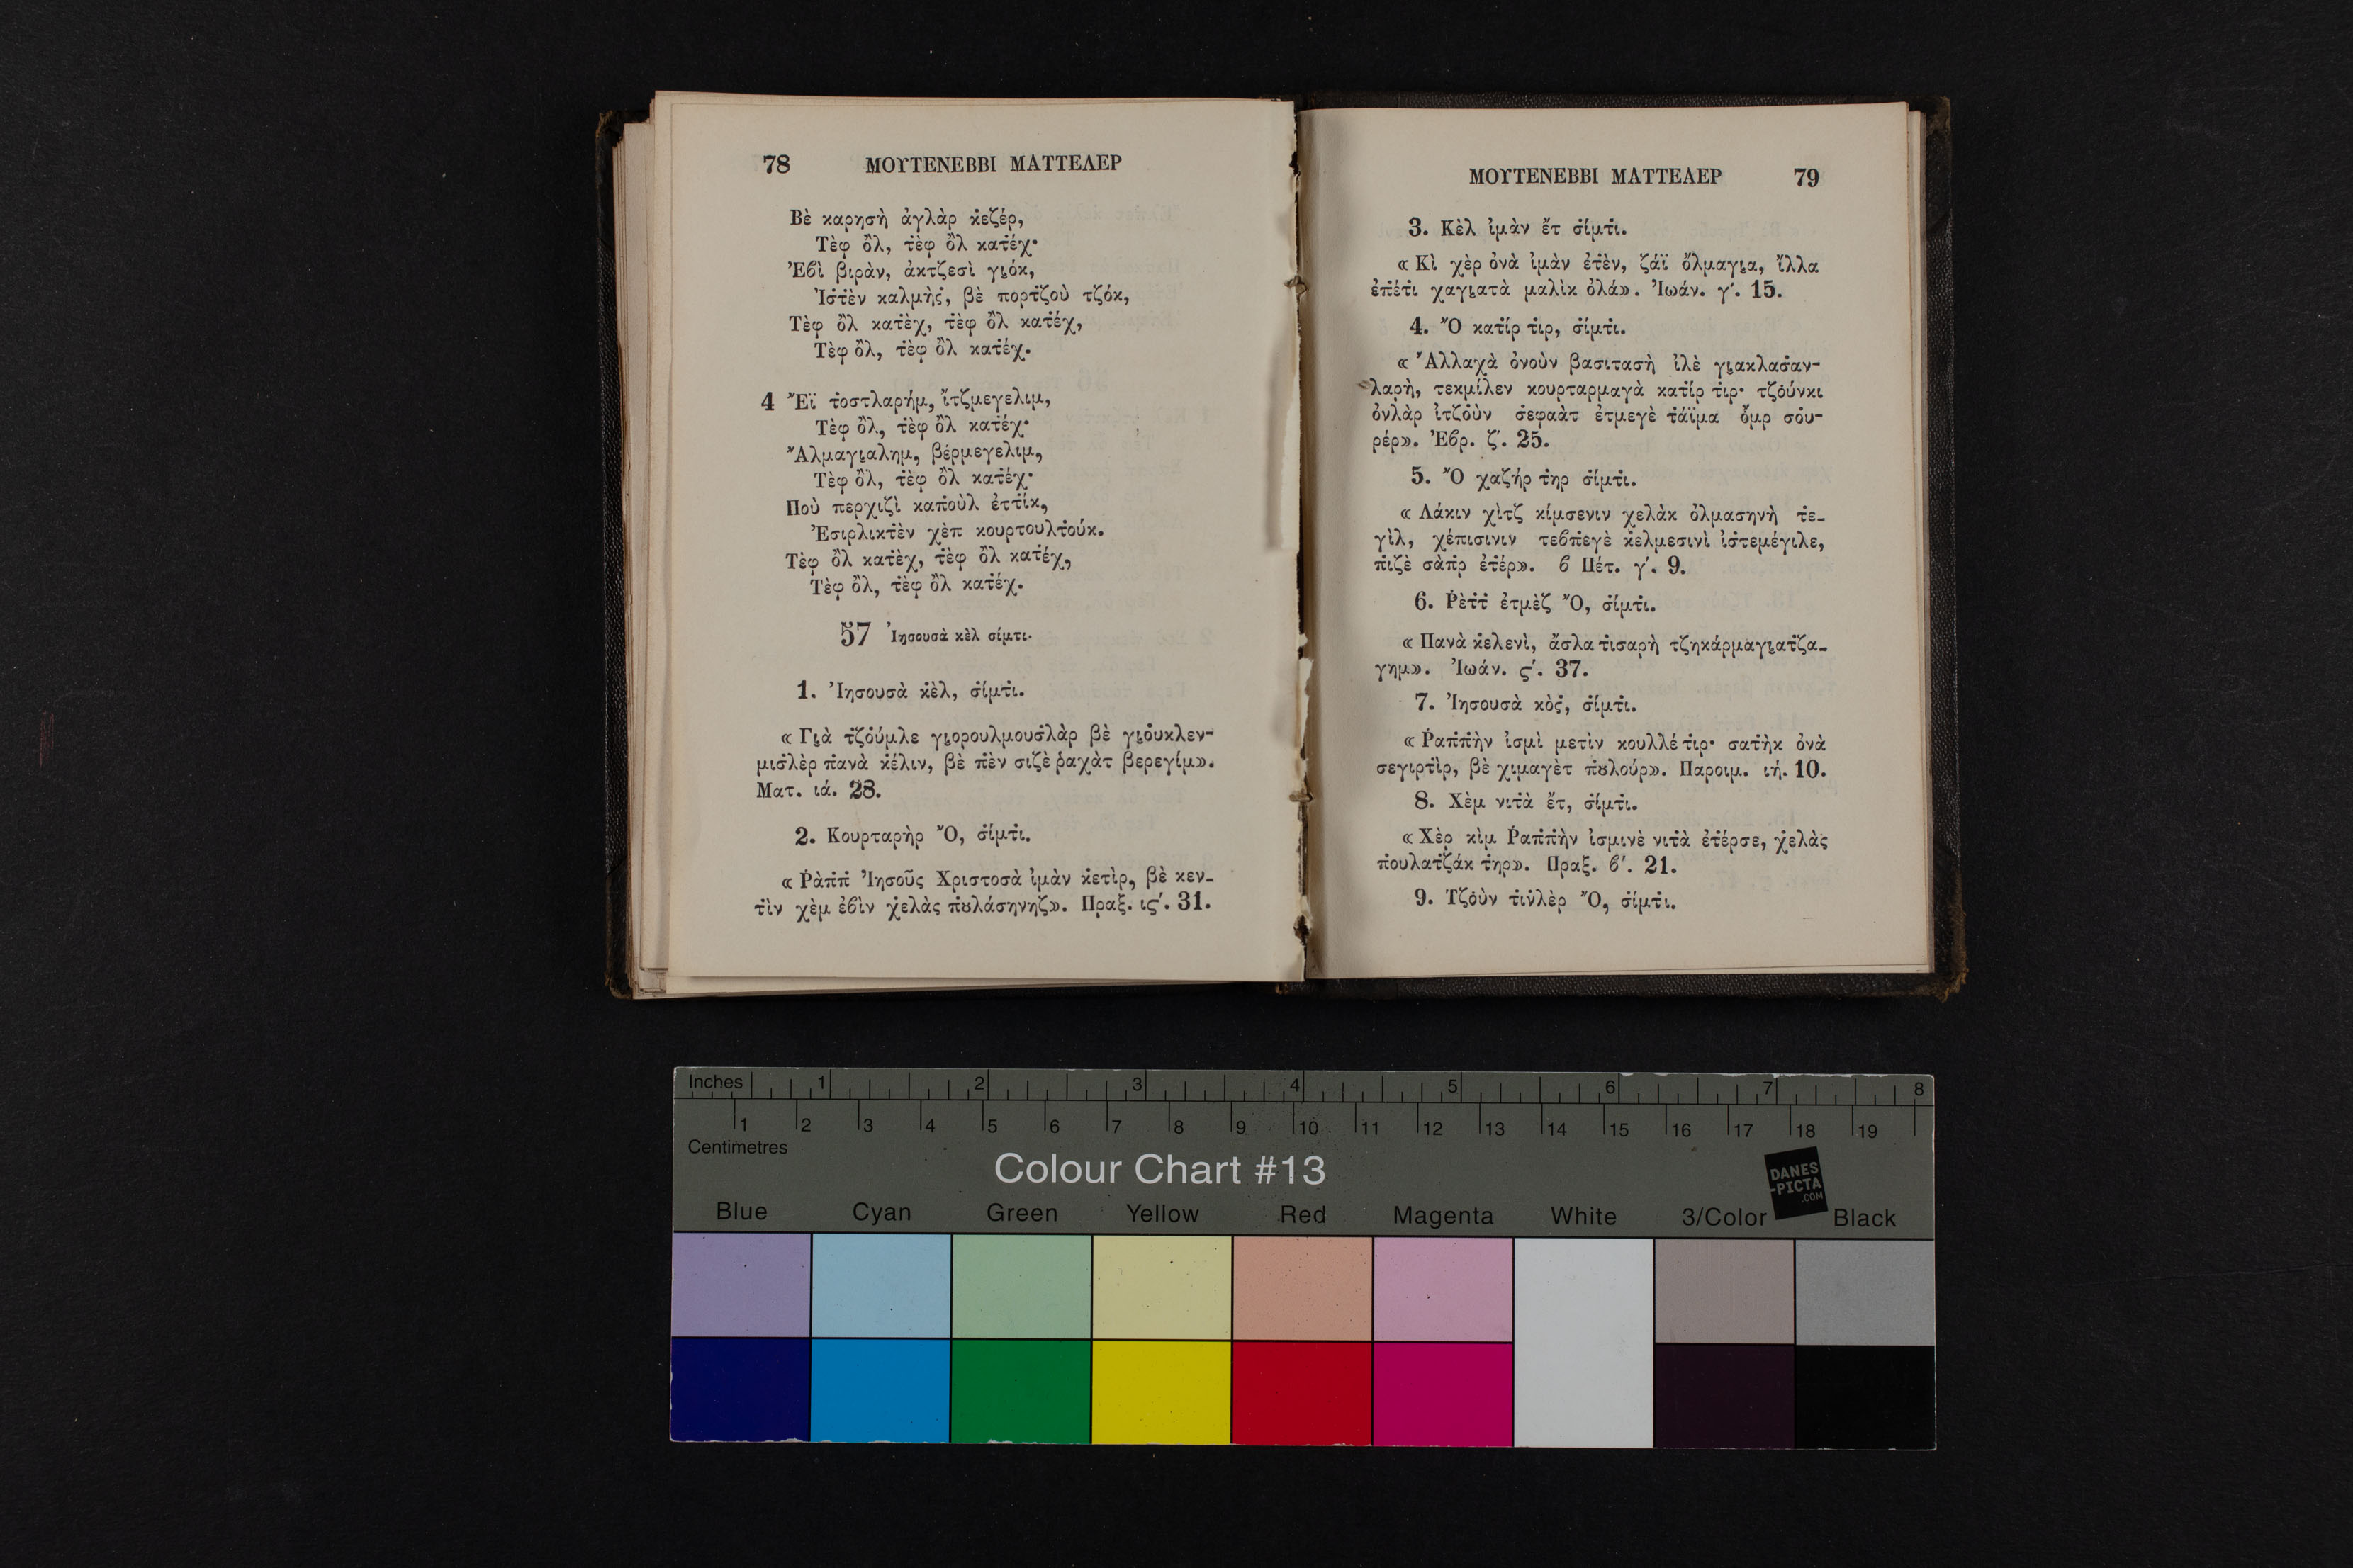 78 ΜΟΥΤΕΝΕΒΒΙ ΜΑΤΤΕΛΕΡ
Βὲ καρησὴ ἀγλὰρ κ̇εζέρ,
Τὲφ ὂλ, τ̇ὲφ ὂλ κατ̇έχ·
Ἐϐὶ βιρὰν, ἀκτζεσὶ γι̱όκ,
Ἰστ̇ὲν καλμὴς̇, βὲ πορτ̇ζοὺ τζόκ,
Τὲφ ὂλ κατ̇ὲχ, τ̇ὲφ ὂλ κατ̇έχ,
Τὲφ ὂλ, τ̇ὲφ ὂλ κατ̇έχ.
4 Ἔϊ τ̇οστλαρήμ, ἴτζμεγελιμ,
Τὲφ ὂλ, τ̇ὲφ ὂλ κατ̇έχ·
Ἄλμαγι̱αλημ, βέρμεγελιμ,
Τὲφ ὂλ, τ̇ὲφ ὂλ κατ̇έχ·
Ποὺ περχιζὶ καπ̇οὺλ ἐττ̇ίκ,
Ἐσιρλικτ̇ὲν χὲπ κουρτουλτ̇ούκ.
Τὲφ ὂλ κατ̇ὲχ, τ̇ὲφ ὂλ κατ̇έχ,
Τὲφ ὂλ, τ̇ὲφ ὂλ κατ̇έχ.
57 Ἰησουσὰ κὲλ σίμτι.
1. Ἰησουσὰ κ̇ὲλ, σ̇ίμτ̇ι.
« Γι̱ὰ τ̇ζ̇ούμλε γι̱ορουλμουσ̇λὰρ βὲ γι̱ο̇υκλεν-
μισ̇λὲρ π̇ανὰ κ̇έλιν, βὲ π̇ὲν σιζὲ ῥαχὰτ βερεγίμ».
Ματ. ιά. 28.
2. Κουρταρὴρ Ὄ, σ̇ίμτ̇ι.
« Ῥὰπ̇π̇ Ἰησοῦς Χριστοσὰ ἰμὰν κ̇ετὶρ, βὲ κεν-
τ̇ὶν χὲμ ἐϐὶν χ̇ελὰς π̇ȣλάσηνηζ». Πραξ. ις΄. 31.
ΜΟΥΤΕΝΕΒΒΙ ΜΑΤΤΕΛΕΡ 79
3. Κὲλ ἰμὰν ἔτ σ̇ίμτ̇ι.
« Κὶ χὲρ ὀνὰ ἰμὰν ἐτ̇ὲν, ζάϊ ὄλμαγι̱α, ἴλλα
ἐπ̇έτ̇ι χαγι̱ατὰ μαλὶκ ὀλά». Ἰωάν. γ΄. 15.
4. Ὄ κατ̇ίρ τ̇ιρ, σ̇ίμτ̇ι.
« Ἀλλαχὰ ὀνοὺν βασιτασὴ ἰλὲ γι̱ακλασ̇αν-
λαρὴ, τεκμίλεν κουρταρμαγὰ κατ̇ίρ τ̇ιρ· τζ̇ούνκι
ὀνλὰρ ἰτζ̇οὺν σ̇εφαὰτ ἐτμεγὲ τ̇άϊμα ὄμρ σο̇υ-
ρέρ». Ἑϐρ. ζ΄. 25.
5. Ὄ χαζήρ τ̇ηρ σ̇ίμτ̇ι.
« Λάκιν χὶτζ κίμσενιν χελὰκ ὀλμασηνὴ τ̇ε-
γὶλ, χέπισινιν τεϐπ̇εγὲ κ̇ελμεσινὶ ἰσ̇τεμέγιλε,
π̇ιζὲ σὰπ̇ρ ἐτ̇έρ». ϐ Πέτ. γ΄. 9.
6. Ῥὲτ̇τ̇ ἐτμὲζ Ὄ, σ̇ίμτ̇ι.
« Πανὰ κ̇ελενὶ, ἄσλα τ̇ισ̇αρὴ τζηκάρμαγι̱ατ̇ζα-
γημ». Ἰωάν. ς΄. 37.
7. Ἰησουσὰ κὸς̇, σ̇ίμτ̇ι.
« Ῥαπ̇π̇ὴν ἰσμὶ μετὶν κουλλέ τ̇ιρ· σατ̇ὴκ ὀνὰ
σεγιρτ̇ὶρ, βὲ χιμαγὲτ π̇ȣλούρ». Παροιμ. ιή. 10.
8. Χὲμ νιτ̇ὰ ἔτ, σ̇ίμτ̇ι.
« Χὲρ κὶμ Ῥαπ̇π̇ὴν ἰσμινὲ νιτ̇ὰ ἐτ̇έρσε, χ̇ελὰς
π̇ουλατ̇ζάκ τ̇ηρ». Πραξ. ϐ΄. 21.
9. Τζ̇οὺν τ̇ιν̇λὲρ Ὄ, σ̇ίμτ̇ι.
Inches 1 2 3 4 5 6 7 8
1 2 3 4 5 6 7 8 9 10 11 12 13 14 15 16 17 18 19
Centimetres
Colour Chart #13
DANES
-PICTA
.COM
Blue Cyan Green Yellow Red Magenta White 3/Color Black